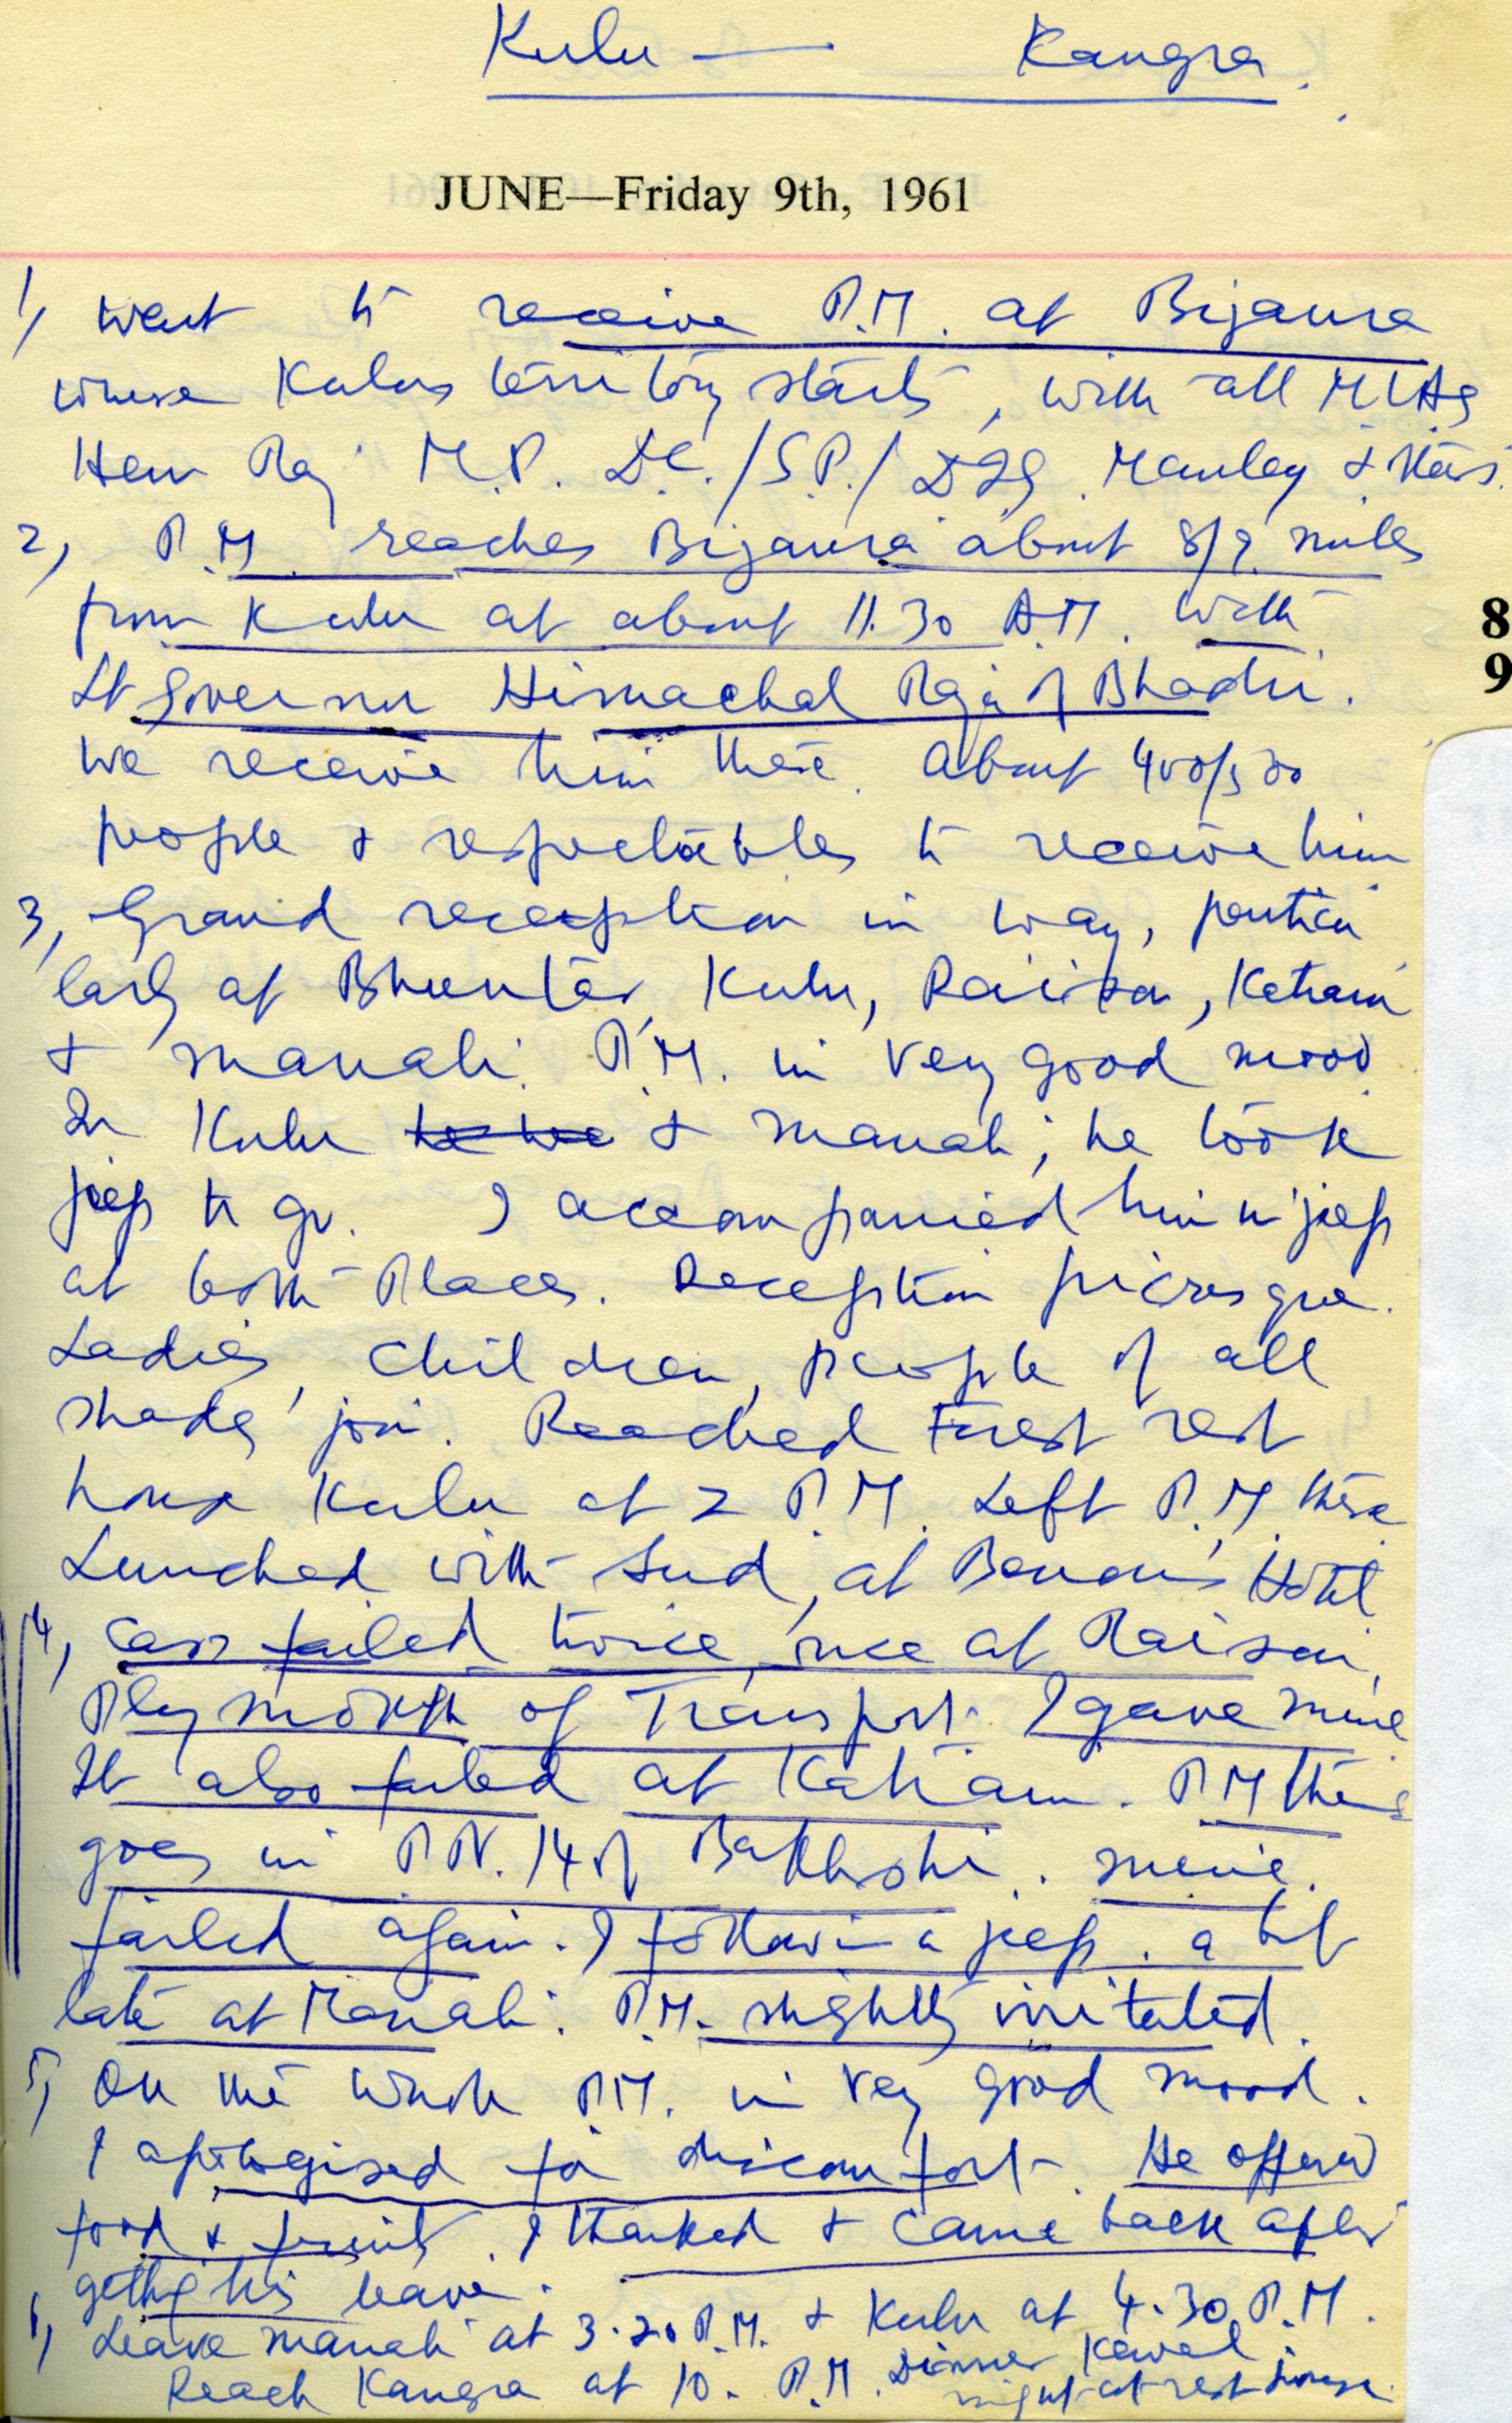 Kulu — Kangra.
JUNE—Friday 9th, 1961
1, Went to receive P.M. at Bijaura
where Kulu territory starts, with all MLAs
Hem Raj M.P. D.C./S.P./DIG. Manley & others.
2, P.M. reaches Bijaura about 8/9 miles
from Kulu at about 11.30 A.M. with
8
Lt Governor Himachal Raja of Bhadri.
9
We receive him there. About 400/500
people & respectables to receive him
3, Grand reception in way, particu
larly at Bhunter, Kulu, Raison, Katrain
& Manali. P.M. in very good mood.
In Kulu & Manali, he took
jeep to go. I accompanied him in jeep
at both Places. Reception picresque.
Ladies, Children, people of all
shades join. Reached Forest rest
house Kulu at 2 P.M. Left P.M there
Lunched with Sud, at Benon's Hotel
4, Car failed twice, once at Raison,
Plymouth of Transport. I gave mine
It also failed at Katrain. P.M then
goes in P.N. 14 of Bakhshi. mine
failed again. I follow in a jeep. a bit
late at Manali. P.M. slightly irritated.
5, On the whole P.M. in very good mood.
I apologised for discomfort. He offered
food & fruits. I thanked & came back after
getting his leave.
6, Leave Manali at 3.20 P.M. & Kulu at 4.30 P.M.
Reach Kangra at 10. P.M. Dinner Kewal.
night at rest house.